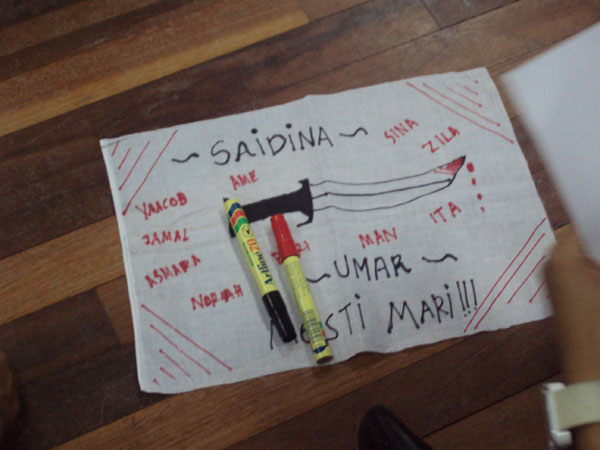 ~ SAiDiNA ~
SINA
ZILA
AME
YAACOB
JAMAL
ASMARA
ITA
MAN
~ UMAR ~
MESTi MARi!!!
Artline 70